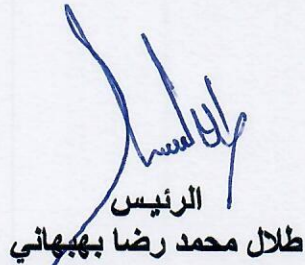 الرئيس
طلال محمد رضا بهبهاني